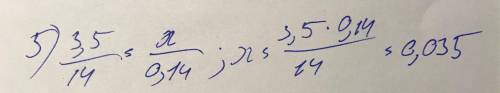 5) 3,5/14 = x/0,14 ; x = 3,5 · 0,14/14 = 0,035